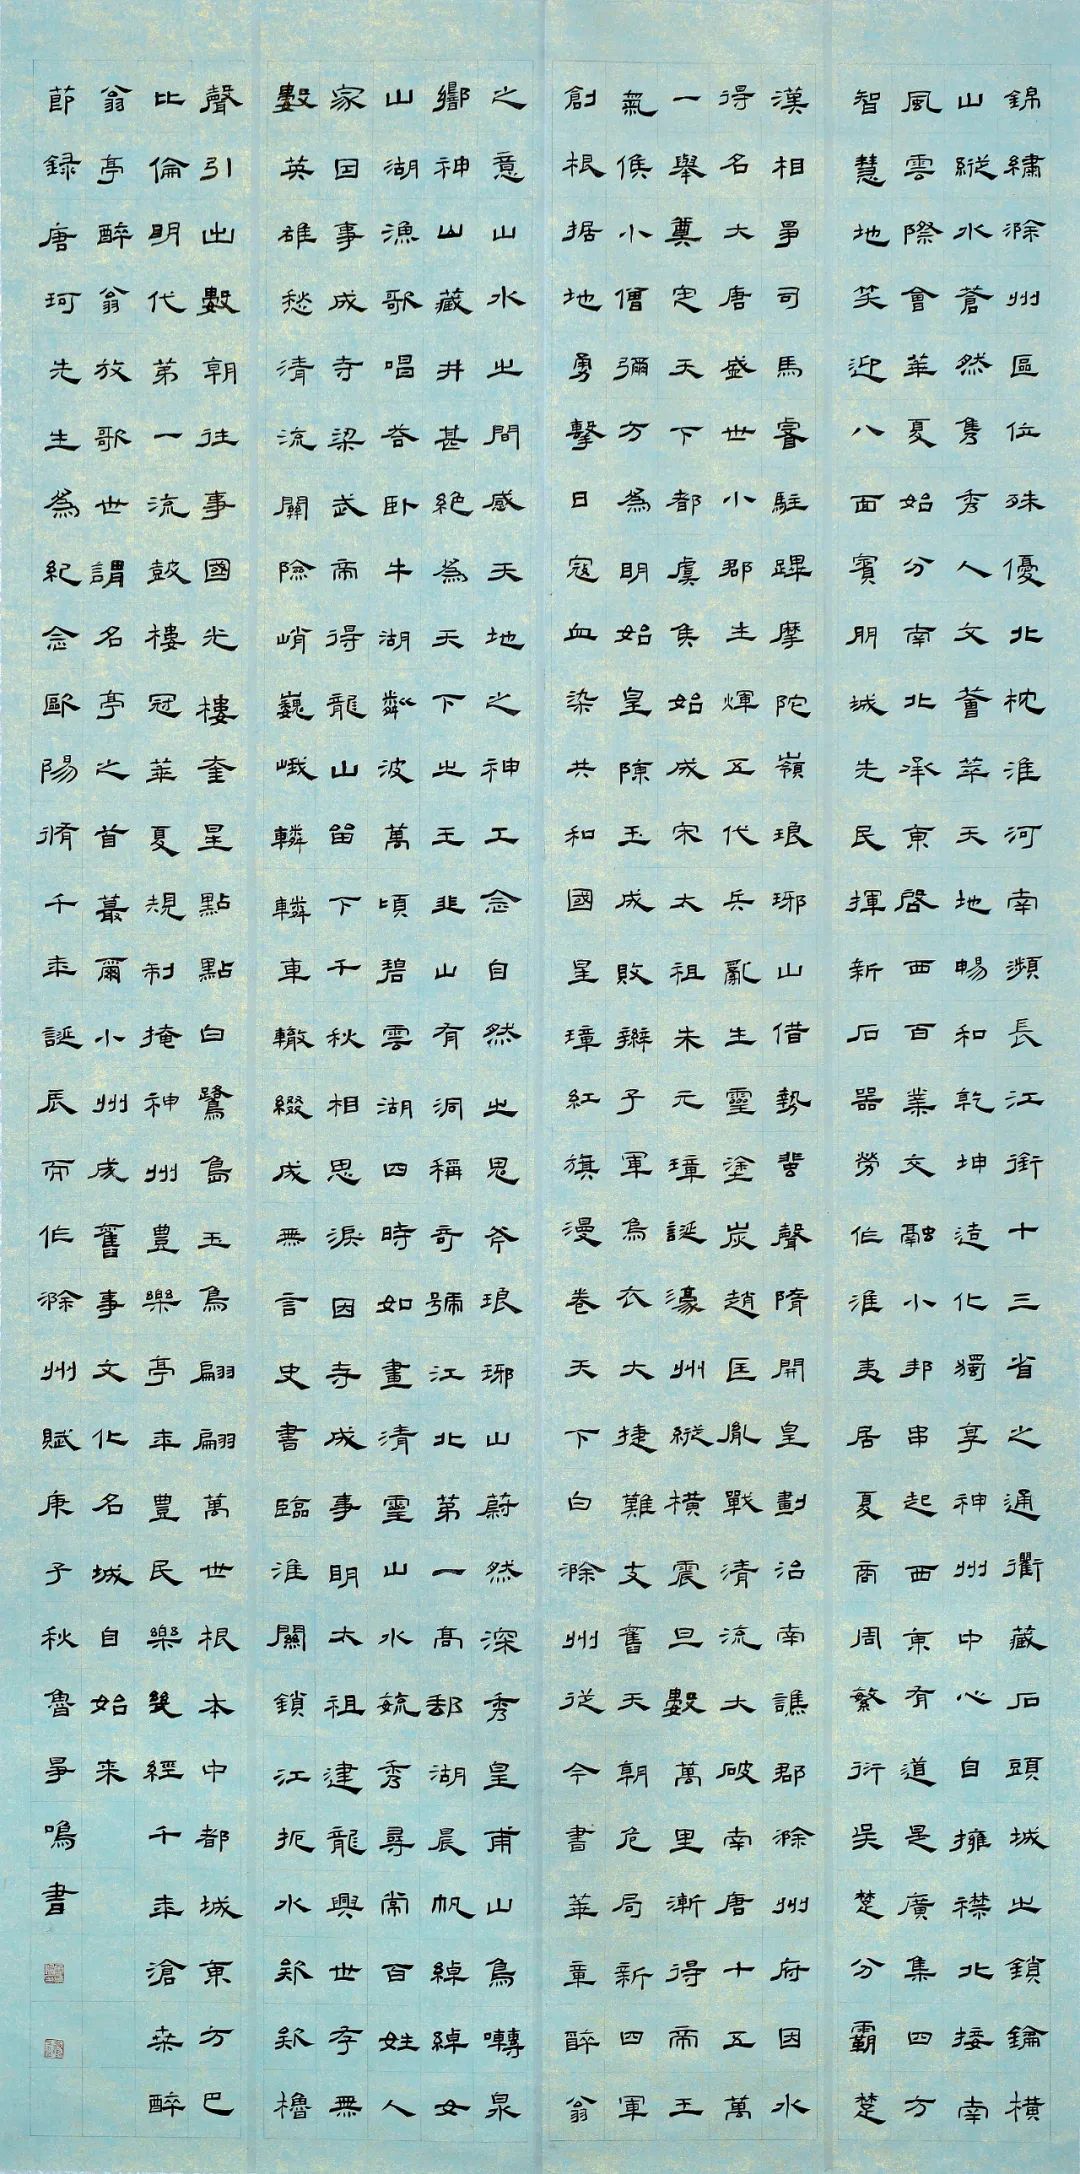 錦繡滁州區位殊優北枕淮河南瀕長江銜十三省之通衢藏石頭城之鎖鑰橫
山縱水蒼然雋秀人文薈萃天地暢和乾坤造化獨享神州中心自擁襟北接南
風雲際會華夏始分南北承東啓西百業交融小邦串起西東有道是廣集四方
智慧地笑迎八面賓朋城先民揮新石器勞作淮夷居夏商周繁衍吳楚分霸楚
漢相爭司馬睿駐蹕摩陀嶺琅琊山借勢蜚聲隋開皇劃治南譙郡滁州府因水
得名大唐盛世小郡生輝五代兵亂生靈塗炭趙匡胤戰清流大破南唐十五萬
一舉奠定天下都虞侯始成宋太祖朱元璋誕濠州縱橫震旦數萬里漸得帝王
氣候小僧彌方為明始皇陳玉成敗辮子軍烏衣大捷難支舊天朝危局新四軍
創根据地勇擊日寇血染共和國呈璋紅旗漫卷天下白滁州從今書華章醉翁
之意山水之間感天地之神工念自然之鬼斧琅琊山蔚然深秀皇甫山鳥囀泉
鄉神山藏井甚絕為天下之王韭山有洞稱奇號江北第一高郵湖晨帆綽綽女
山湖漁歌唱答卧牛湖粼波萬頃碧雲湖四時如畫清靈山水毓秀尋常百姓人
家因事成寺梁武帝得龍山留下千秋相思淚因寺成事明太祖建龍興世存無
數英雄愁清流關險峭巍峨轔轔車轍綴成無言史書臨淮關鎖江扼水欵欵櫓
聲引出數朝往事國光樓奎星點點白鷺島玉鳥翩翩萬世根本中都城東方巴
比倫明代第一流鼓樓冠華夏規制掩神州豊樂亭年豊民樂幾經千年滄桑醉
翁亭醉翁放歌世謂名亭之首蕞爾小州成舊事文化名城自始来
節録唐珂先生為紀念歐陽脩千年誕辰而作滁州賦庚子秋魯爭鳴書